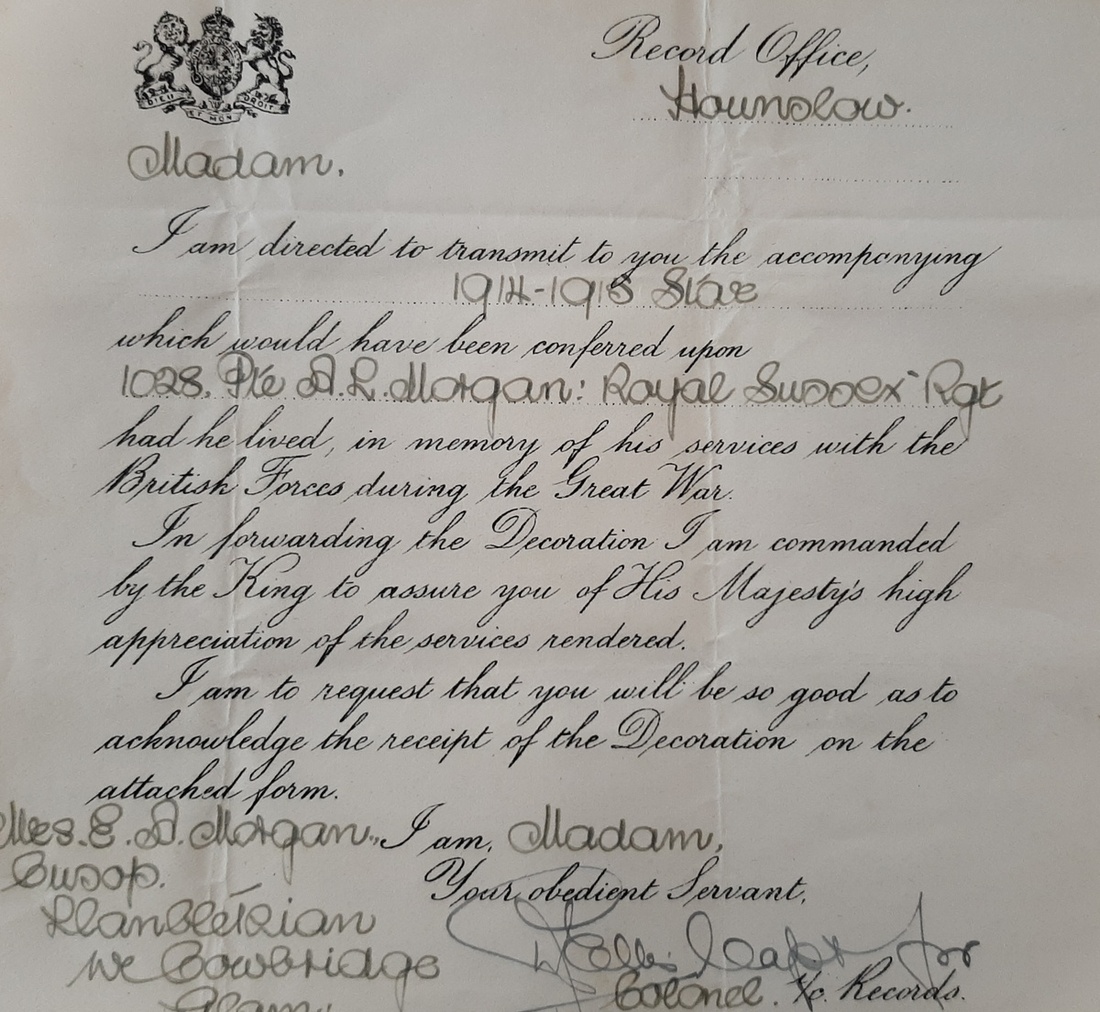 DIEU ET MON DROIT
Record Office,
Hounslow.
Madam,
I am directed to transmit to you the accompanying
1914-1915 Star
which would have been conferred upon
1028. Pte A. L. Morgan: Royal Sussex Rgt
had he lived, in memory of his services with the
British Forces during the Great War.
In forwarding the Decoration I am commanded
by the King to assure you of His Majesty's high
appreciation of the services rendered.
I am to request that you will be so good as to
acknowledge the receipt of the Decoration on the
attached form.
Mrs. E. A. Morgan.
I am, Madam,
Your obedient Servant,
Llanblethian
Nr Cowbridge
Glam.
for
Colonel. i/c. Records.